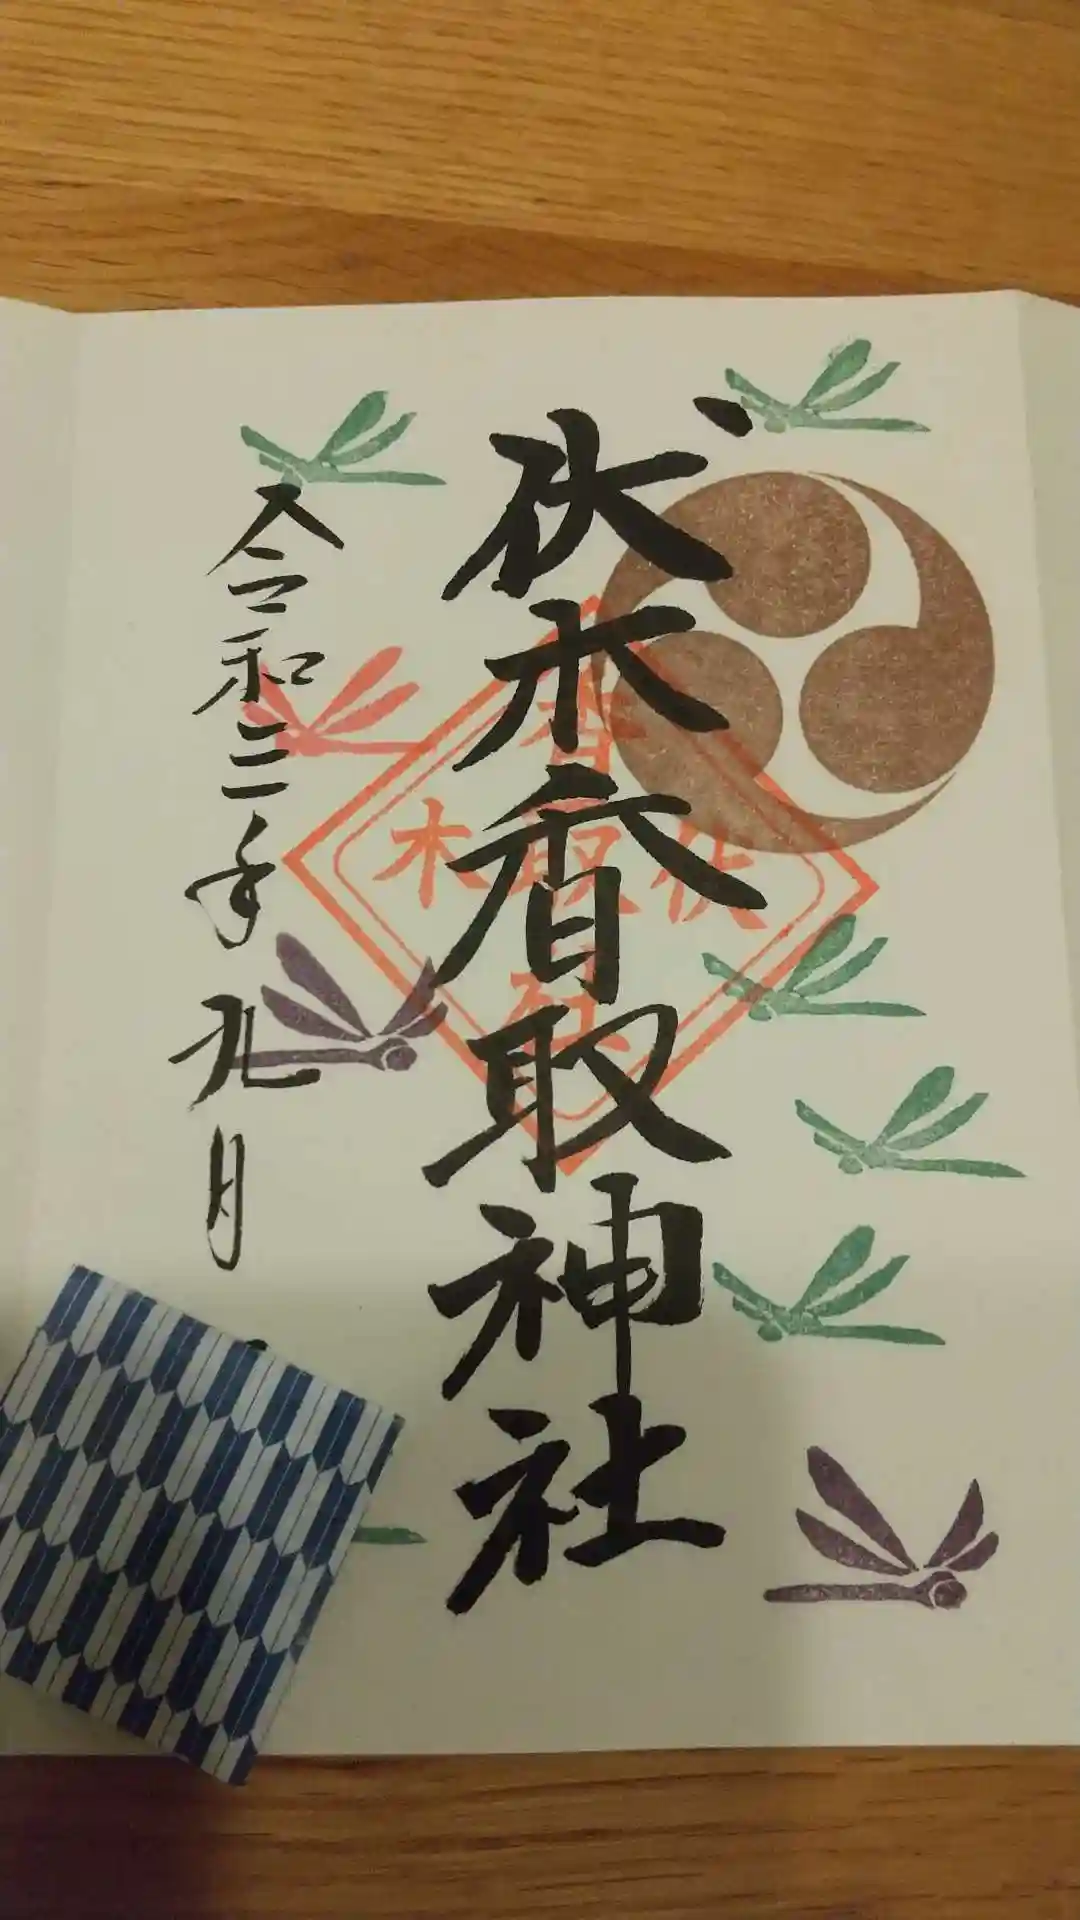 伏木香取神社
令和三年九月
伏木
香取社